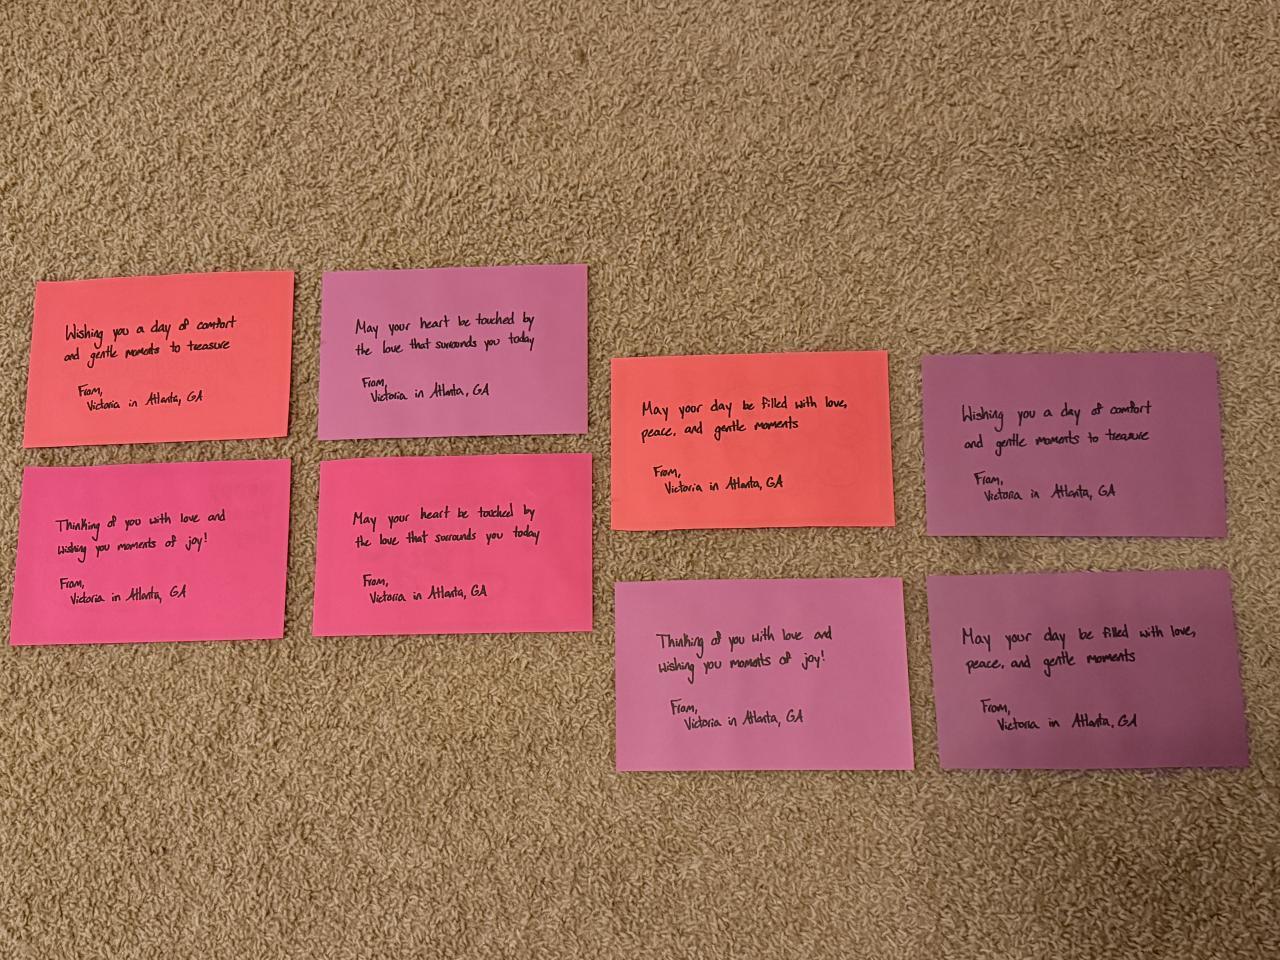 Wishing you a day of comfort
and gentle moments to treasure
From,
Victoria in Atlanta, GA
May your heart be touched by
the love that surrounds you today
From,
Victoria in Atlanta, GA
Thinking of you with love and
wishing you moments of joy!
From,
Victoria in Atlanta, GA
May your heart be touched by
the love that surrounds you today
From,
Victoria in Atlanta, GA
May your day be filled with love,
peace, and gentle moments
From,
Victoria in Atlanta, GA
Wishing you a day of comfort
and gentle moments to treasure
From,
Victoria in Atlanta, GA
Thinking of you with love and
wishing you moments of joy!
From,
Victoria in Atlanta, GA
May your day be filled with love,
peace, and gentle moments
From,
Victoria in Atlanta, GA